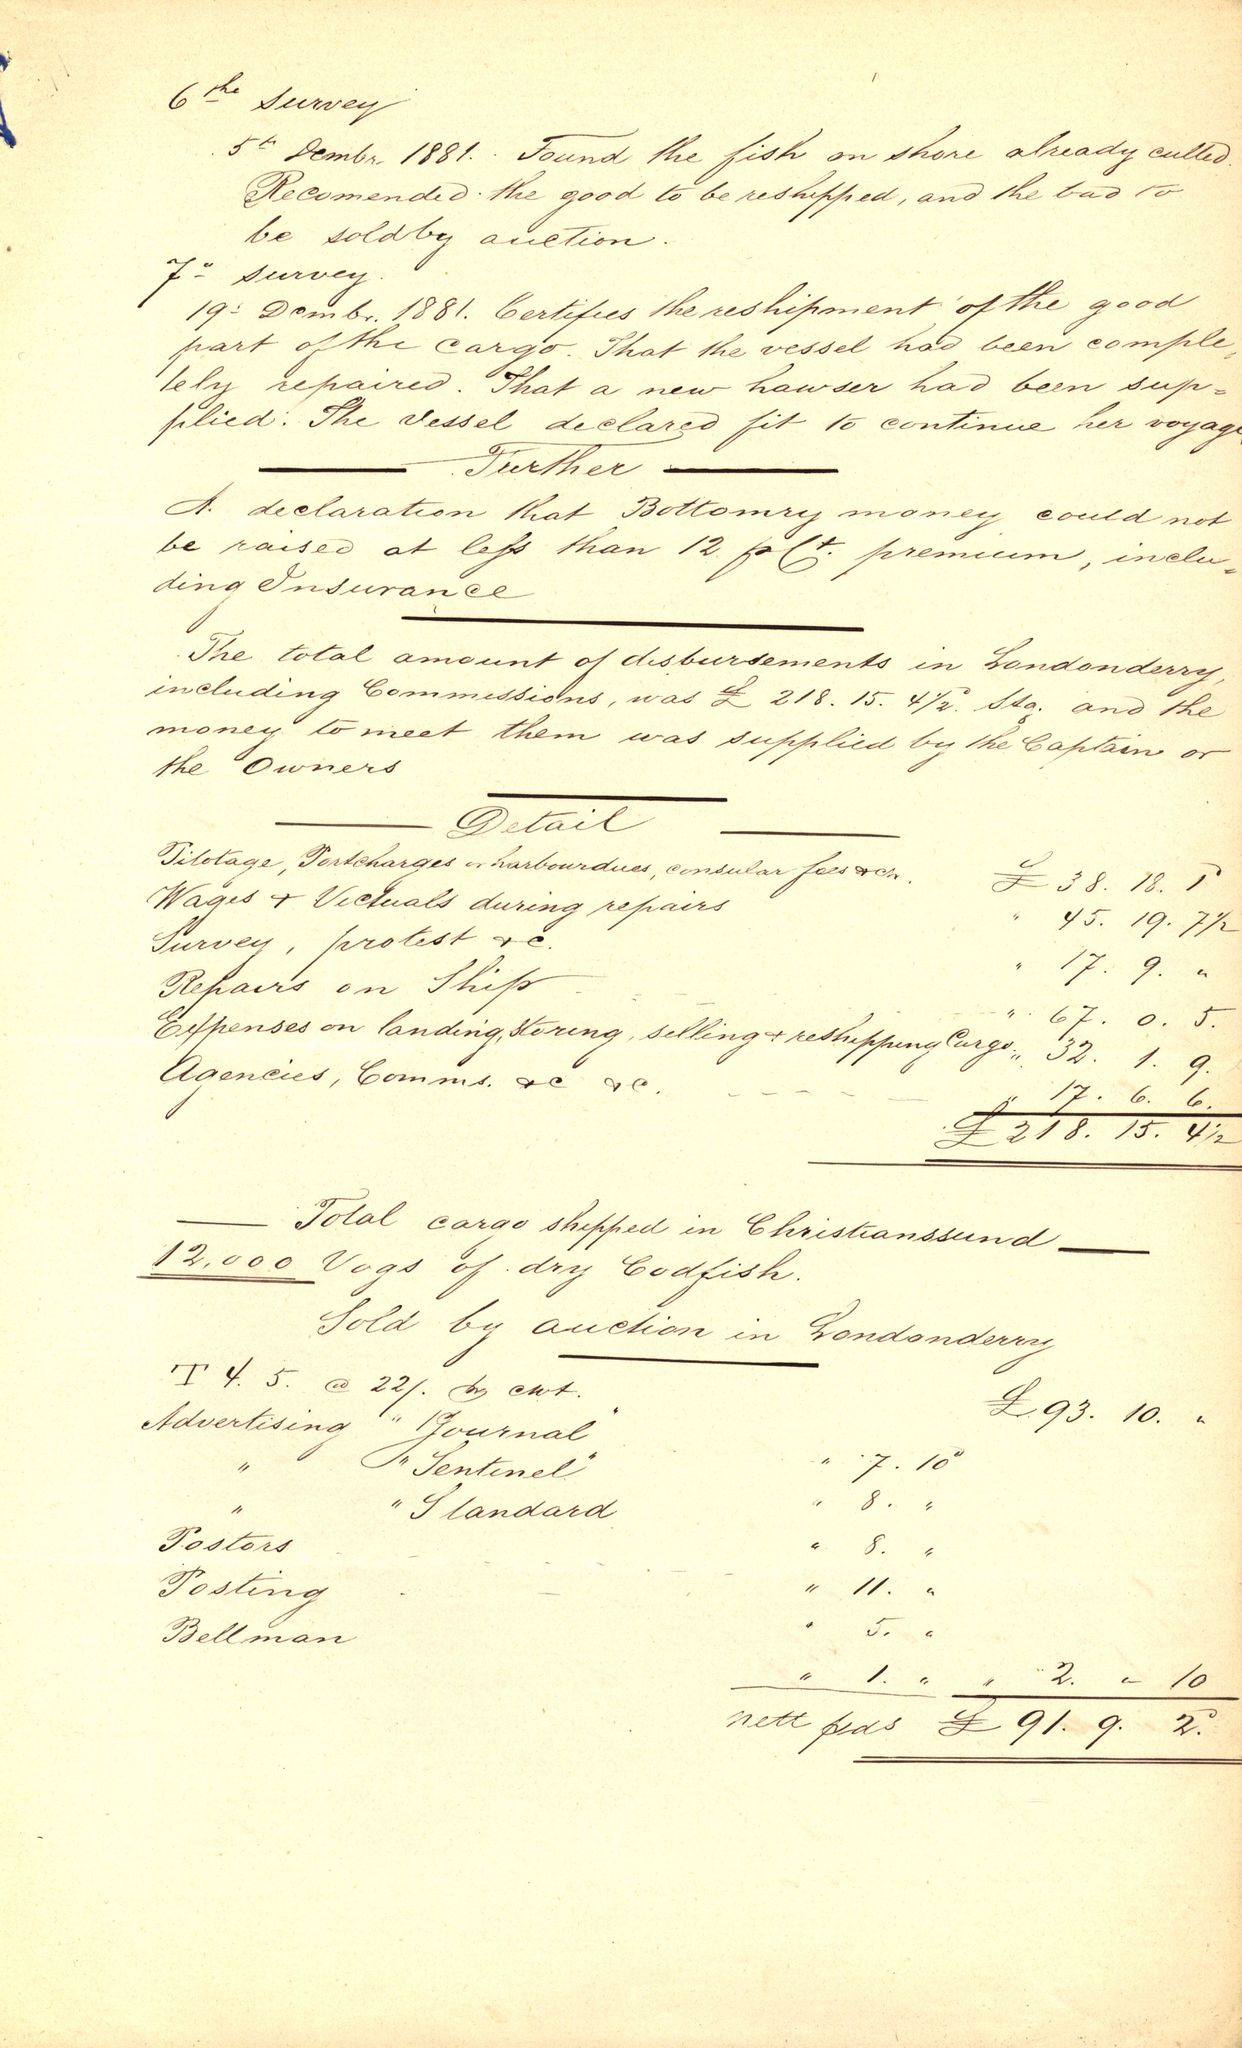 6the Survey
5th Dembr. 1881. Found the fish on shore already culled.
Recomended the good to be reshipped, and the bad to
be sold by auction.
7º Survey.
19: Dembr. 1881. Certifies the reshipment of the good
part of the cargo. That the vessel had been comple-
tely repaired. That a new hawser had been sup=
plied. The Vessel declared fit to continue her voyage
Further
A declaration that Bottomry money could not
be raised at less than 12 pCt. premium, inclu-
ding Insurance
The total amount of disbursements in Londonderry,
including Commissions, was £ 218. 15. 4½ Stg. and the
money to meet them was supplied by the Captain or
the Owners
Detail
Pilotage, Portcharges or harbourdues, consular fees &ch. £ 38. 18. 1
Wages & Victuals during repairs " 45. 19. 7½
Survey, protest &c. " 17. 9. "
Repairs on Ship " 67. 0. 5.
Expenses on landing, Storing, selling & reshipping Cargo " 32. 1. 9.
Agencies, Comms. &c &c. " 17. 6. 6.
£ 218. 15. 4½
Total cargo shipped in Christianssund
12.000 Vogs of dry Codfish.
Sold by auction in Londonderry
T 4. 5. @ 22/. cwt. £ 93. 10. "
Advertising "Journal" " 7. 10
" "Sentinel" " 8. "
" "Standard " 8. "
Postors " 11. "
Posting " 5. "
Bellman " 1. " " 2. " 10
nett £ 91. 9. 2.